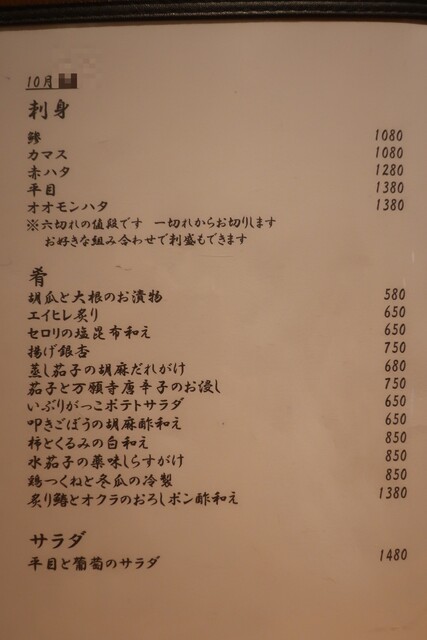 10月
刺身
鯵 1080
カマス 1080
赤ハタ 1280
平目 1380
オオモンハタ 1380
※六切れの値段です 一切れからお切りします
お好きな組み合わせで刺盛もできます
肴
胡瓜と大根のお漬物 580
エイヒレ炙り 650
セロリの塩昆布和え 650
揚げ銀杏 750
蒸し茄子の胡麻だれがけ 680
茄子と万願寺唐辛子のお浸し 750
いぶりがっこポテトサラダ 650
叩きごぼうの胡麻酢和え 650
柿とくるみの白和え 850
水茄子の薬味しらすがけ 850
鶏つくねと冬瓜の冷製 850
炙り鰆とオクラのおろしポン酢和え 1380
サラダ
平目と葡萄のサラダ 1480